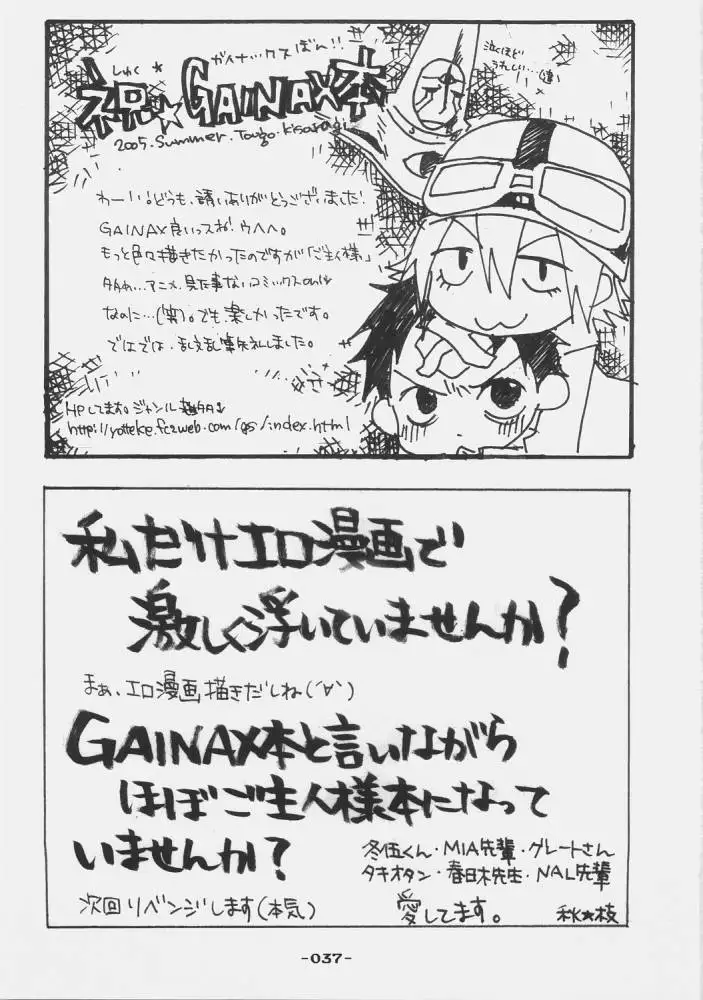 しゅく★
ガイナックスぼん!!
祝☆GAINAX本
2005.Summer.Tougo.Kisaragi
泣くほど
うれしい…
わーい!どうも、誘いありがとうございました!
GAINAX良いっスね!ウヘヘ。
もっと色々描きたかったのですが「ご主人様」
アニメ、見た事ないコミックスonly
なのに…(笑)。でも楽しかったです。
ではでは、乱文乱筆失礼しました。
HPしてます。ジャンル
http://yotteke.fc2web.com/gs/index.html
私だけエロ漫画で
激しく浮いていませんか?
まぁ、エロ漫画描きだしね(´∀`)
GAINAX本と言いながら
ほぼご主人様本になって
いませんか?
冬伍くん・MIA先輩・グレートさん
タキオタン・春日木先生・NAL先輩
次回リベンジします(本気)
愛してます。
秋★枝
-037-